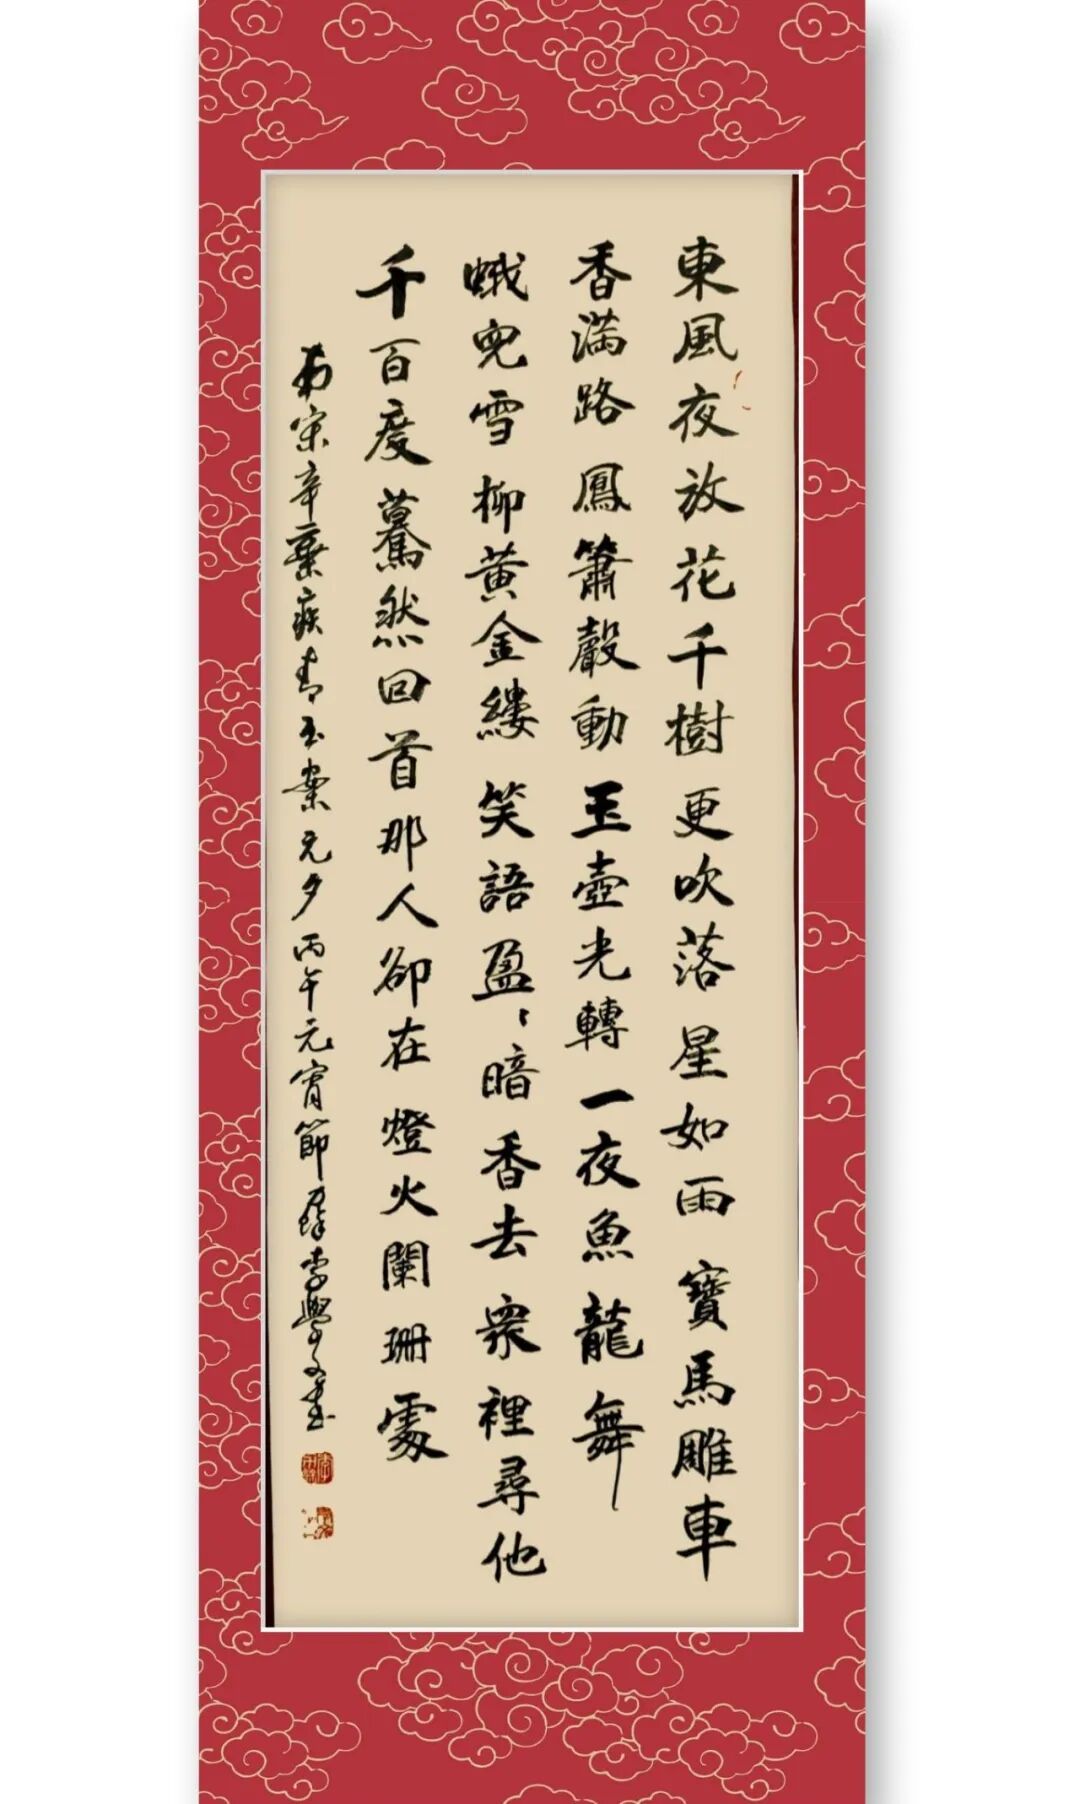 東風夜放花千樹更吹落星如雨寶馬雕車
香滿路鳳簫聲動玉壺光轉一夜魚龍舞
蛾兒雪柳黃金縷笑語盈〻暗香去眾裡尋他
千百度驀然回首那人卻在燈火闌珊處
南宋辛棄疾青玉案元夕丙午元宵節李學文書